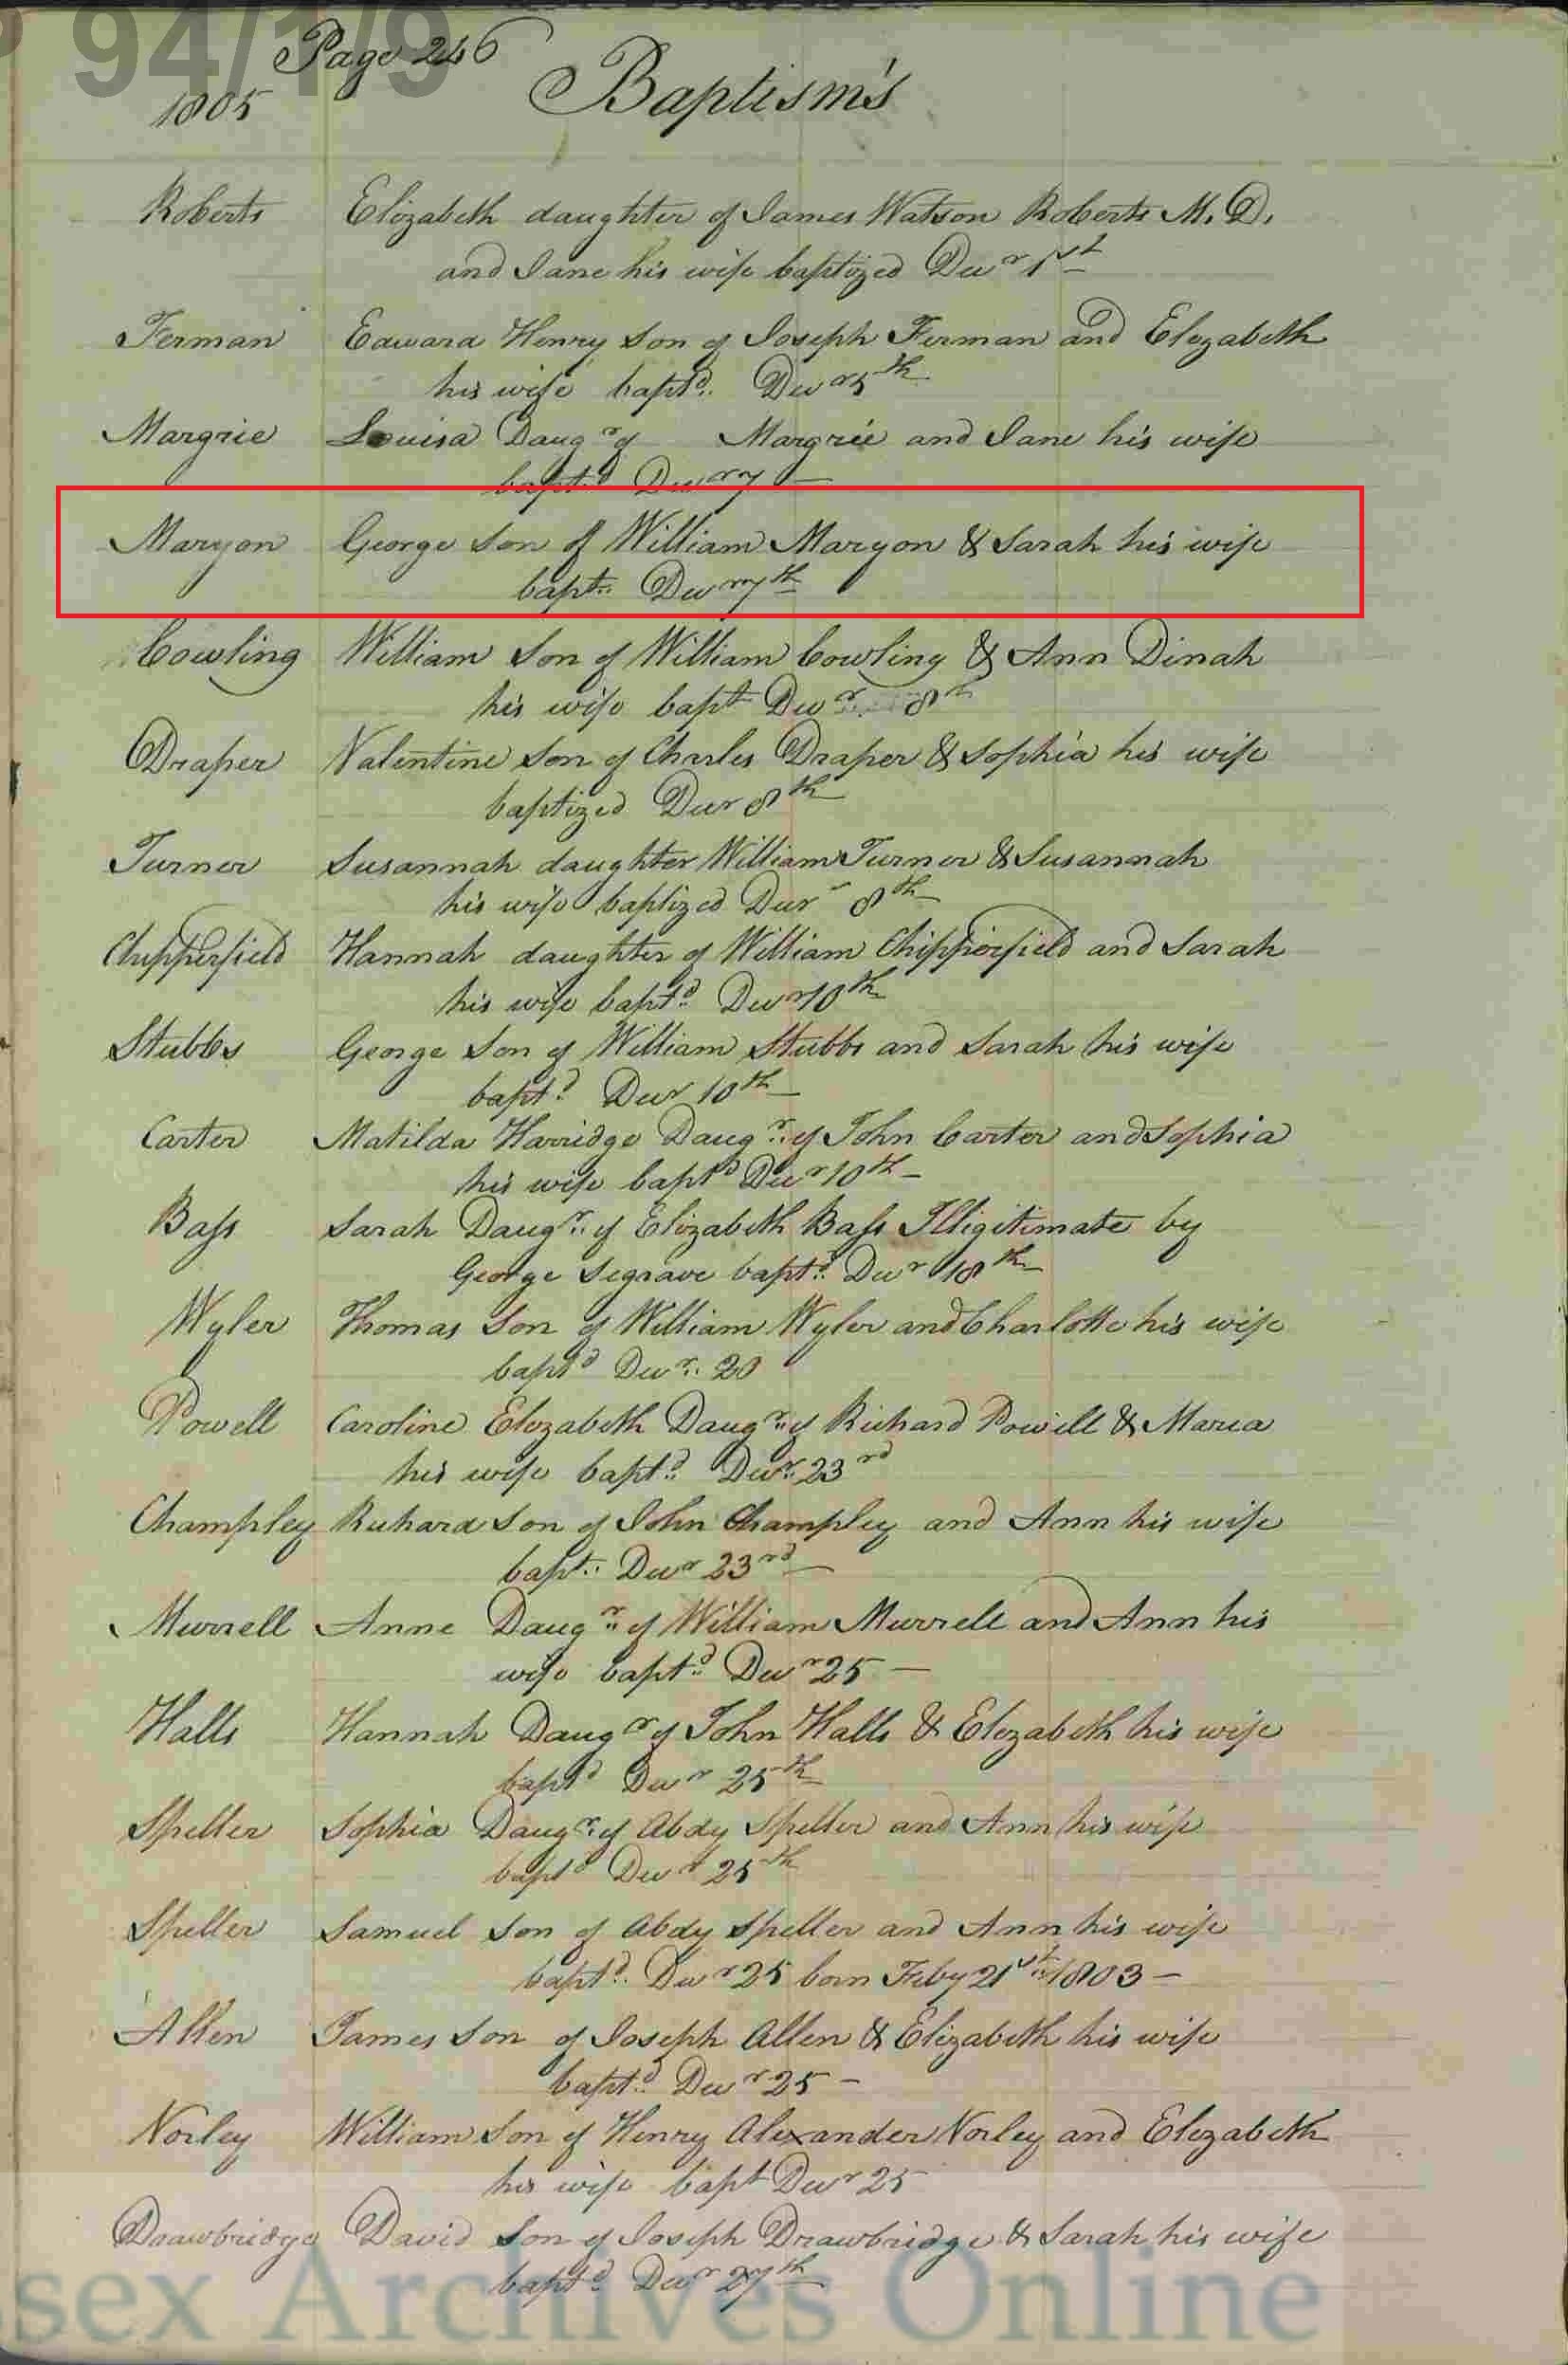 94/1/9
Page 246
1805 Baptism's
Roberts Elizabeth daughter of James Watson Roberts M. D.
and Jane his wife baptized Decr 1st
Ferman Edward Henry Son of Joseph Ferman and Elizabeth
his wife baptd Decr 5th
Margrie Louisa Daugr of Margrie and Jane his wife
baptd Decr 7
Maryon George Son of William Maryon & Sarah his wife
bapt Decr 7th
Cowling William Son of William Cowling & Ann Dinah
his wife bapt Decr 8th
Draper Valentine Son of Charles Draper & Sophia his wife
baptized Decr 8th
Turner Susannah daughter William Turner & Susannah
his wife baptized Decr 8th
Chipperfield Hannah daughter of William Chipperfield and Sarah
his wife baptd Decr 10th
Stubbs George Son of William Stubbs and Sarah his wife
baptd Decr 10th
Carter Matilda Harridge Daugr of John Carter and Sophia
his wife baptd Decr 10th
Bass Sarah Daugr of Elizabeth Bass Illigitimate by
George Segrave baptd Decr 18th
Wyler Thomas Son of William Wyler and Charlotte his wife
baptd Decr 20
Powell Caroline Elizabeth Daugr of Richard Powell & Maria
his wife baptd Decr 23rd
Champley Richard Son of John Champley and Ann his wife
bapt Decr 23rd
Murrell Anne Daugr of William Murrell and Ann his
wife baptd Decr 25
Halls Hannah Daugr of John Halls & Elizabeth his wife
baptd Decr 25th
Speller Sophia Daugr of Abdy Speller and Ann his wife
baptd Decr 25th
Speller Samuel Son of Abdy Speller and Ann his wife
baptd Decr 25 born Feby 21st 1803
Allen James Son of Joseph Allen & Elizabeth his wife
baptd Decr 25
Norley William Son of Henry Alexander Norley and Elizabeth
his wife bapt Decr 25
Drawbridge David Son of Joseph Drawbridge & Sarah his wife
baptd Decr 27th
ssex Archives Online